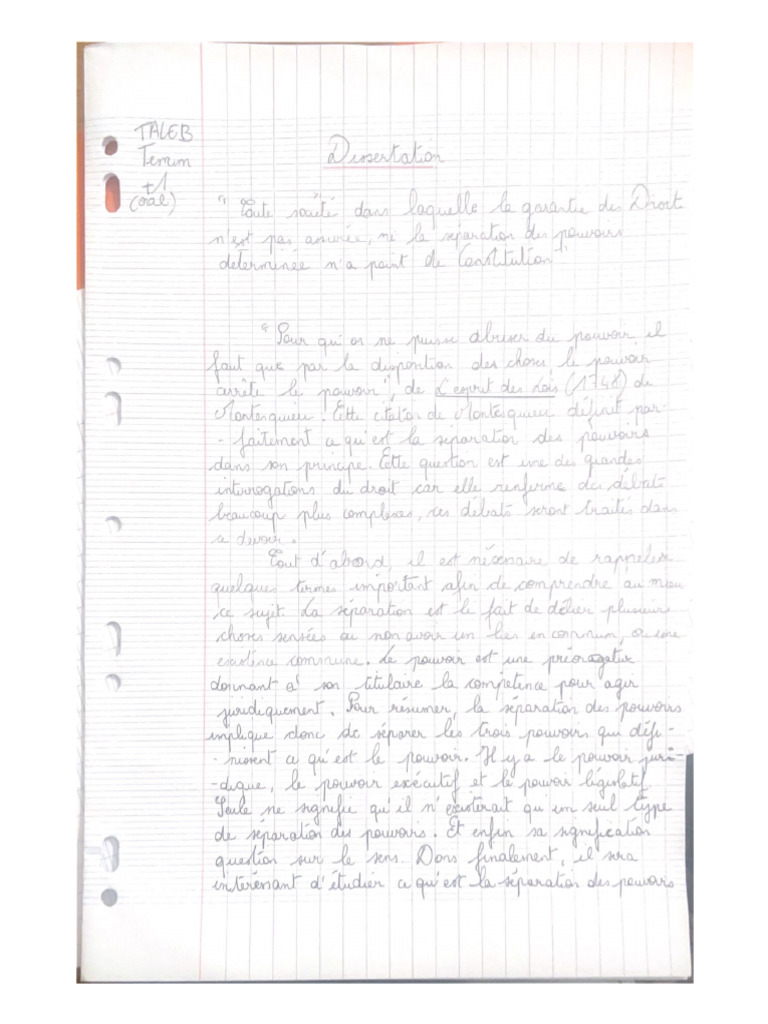 TALEB
Temim
+1
(oral)
Dissertation
" Toute société dans laquelle la garantie des Droit
n'est pas assurée, ni la séparation des pouvoirs
determinée n'a point de Constitution"
"Pour qu'on ne puisse abuser du pouvoir, il
faut que par la disposition des choses le pouvoir
arrête le pouvoir", de L'esprit des Lois (1748) de
Montesquieu. Cette citation de Montesquieu définit par-
-faitement ce qu'est la séparation des pouvoirs
dans son principe. Cette question est une des grandes
interrogations du droit car elle renferme des débats
beaucoup plus complexes, ces débats seront traités dans
ce devoir.
Tout d'abord, il est nécessaire de rappeler
quelques termes important afin de comprendre au mieu
ce sujet. La séparation est le fait de délier plusieurs
choses sensées ou non avoir un lien en commun, ou une
existence commune. Le pouvoir est une
donnant à son titulaire la compétence pour agir
juridiquement. Pour résumer, la séparation des pouvoirs
implique donc de séparer les trois pouvoirs qui défi-
-nissent ce qu'est le pouvoir. Il y a le pouvoir juri-
-dique, le pouvoir exécutif et le pouvoir législatif.
Seule ne signifie qu'il n'existerait qu'un seul type
de séparation des pouvoirs. Et enfin sa signification
question sur le sens. Dons finalement, il sera
intéressant d'étudier ce qu'est la séparation des pouvoirs